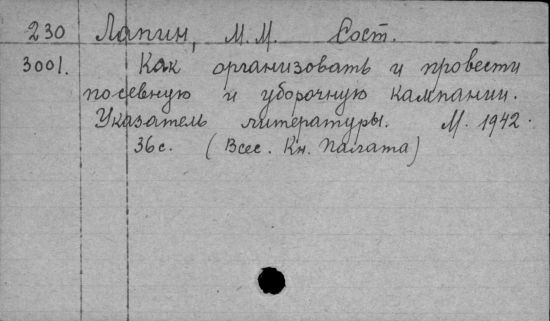 230 Лапин, М. М. Сост.
3001. Как организовать и провести
посевную и уборочную кампании.
Указатель литературы. М. 1942.
36 с. (Всес. Кн. Палата)